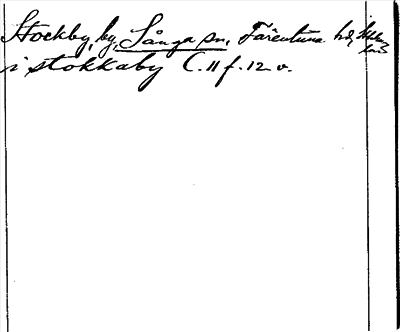 Stockby, by, Sånga sn, Färentuna hd, Sthlms län
i stokkaby C. 11 f. 12 v.